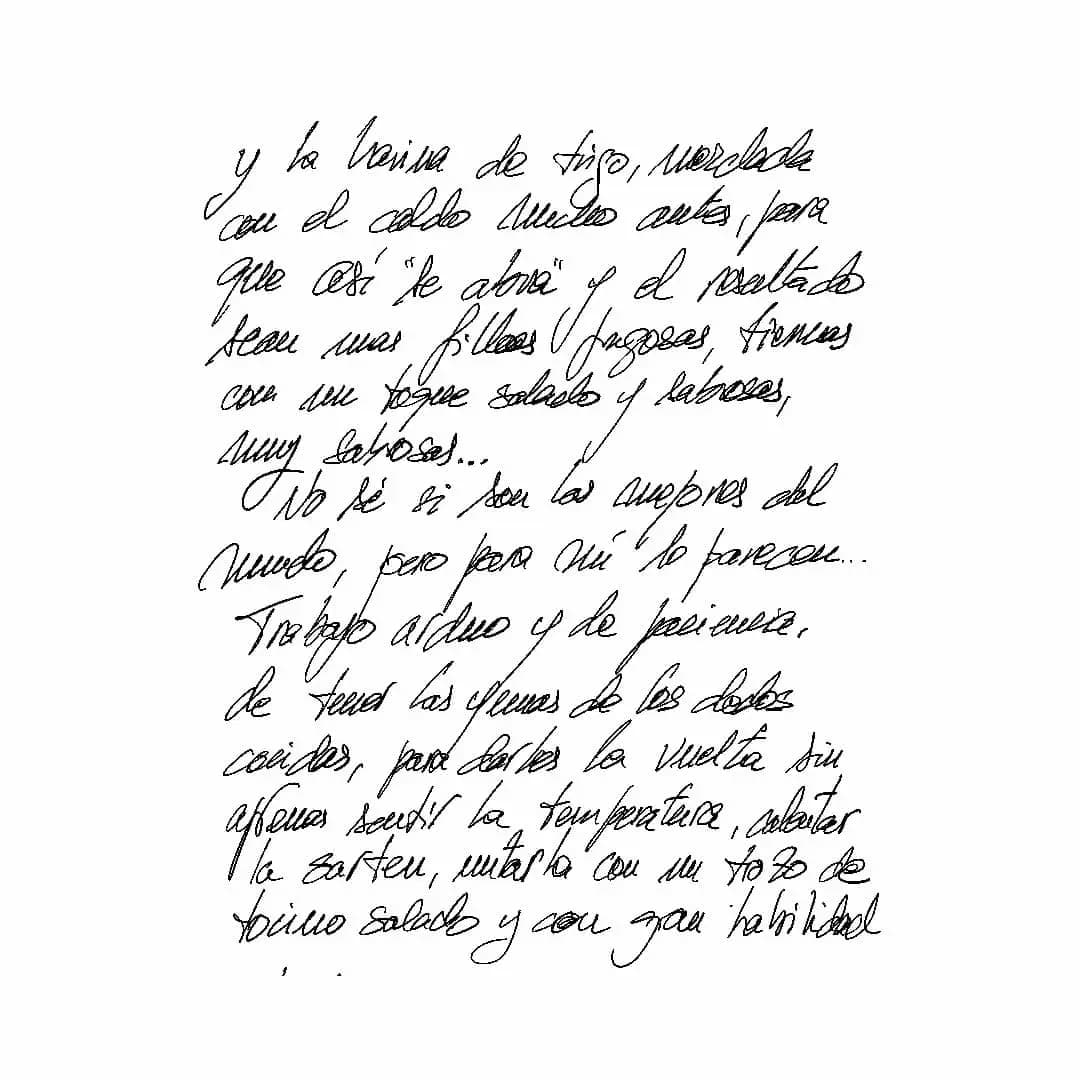 y la harina de trigo, mezclada
con el caldo mucho antes, para
que así "se abra" y el resultado
sean unas filloas jugosas, tiernas
con un toque salado y sabrosas,
muy sabrosas...
No sé si son las mejores del
mundo, pero para mí lo parecen...
Trabajo arduo y de paciencia,
de tener las yemas de los dedos
cocidas, para darles la vuelta sin
apenas sentir la temperatura, calentar
la sarten, untarla con un trozo de
tocino salado y con gran habilidad